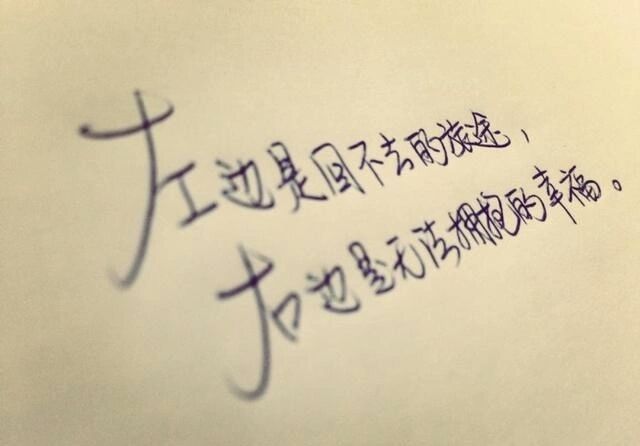 左边是回不去的旅途，
右边是无法拥抱的幸福。